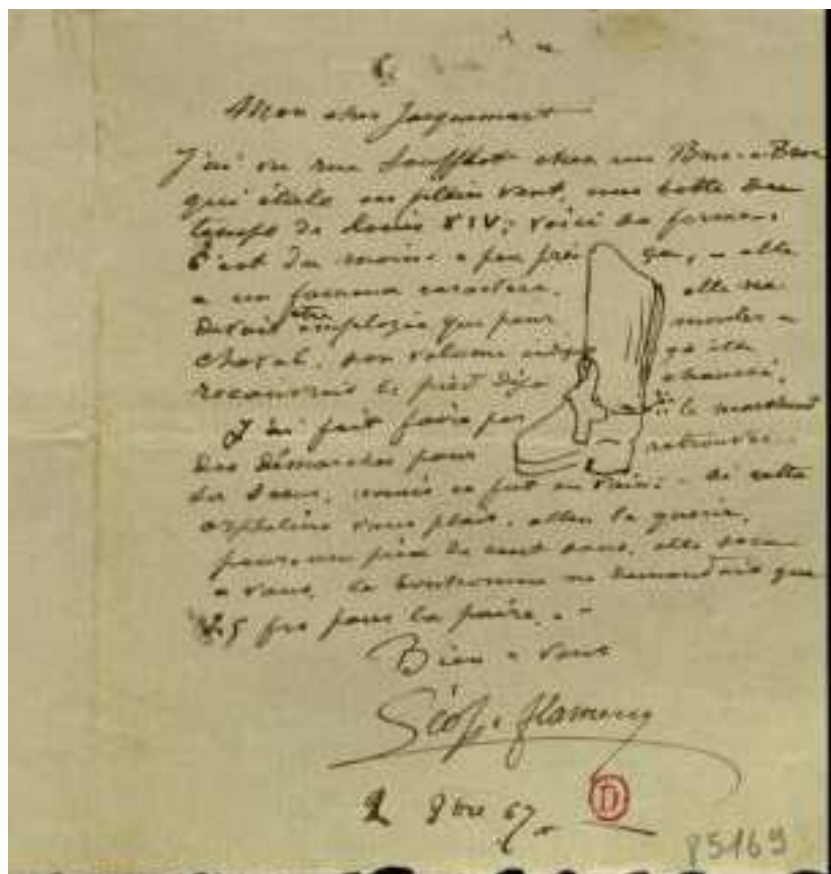 Mon cher Jacquemart
J'ai vu rue Soufflot chez un Bric-à-Brac
qui étale en plein vent, une botte du
temps de Louis XIV; voici sa forme.
C'est du moins à peu près ça, - elle
a un fameux caractère. elle ne
devait être employée que pour monter à
cheval, son volume indique qu'elle
recouvrait le pied déjà chaussé.
J'ai fait faire par le marchand
des démarches pour retrouver
sa soeur, mais ce fut en vain. - Si cette
orpheline vous plait, allez la quérir,
pour une pièce de cent sous, elle sera
à vous, le bonhomme ne demandait que
frs pour la paire. -
Bien à vous
Léop. flameng
2 8bre 67
D
85169